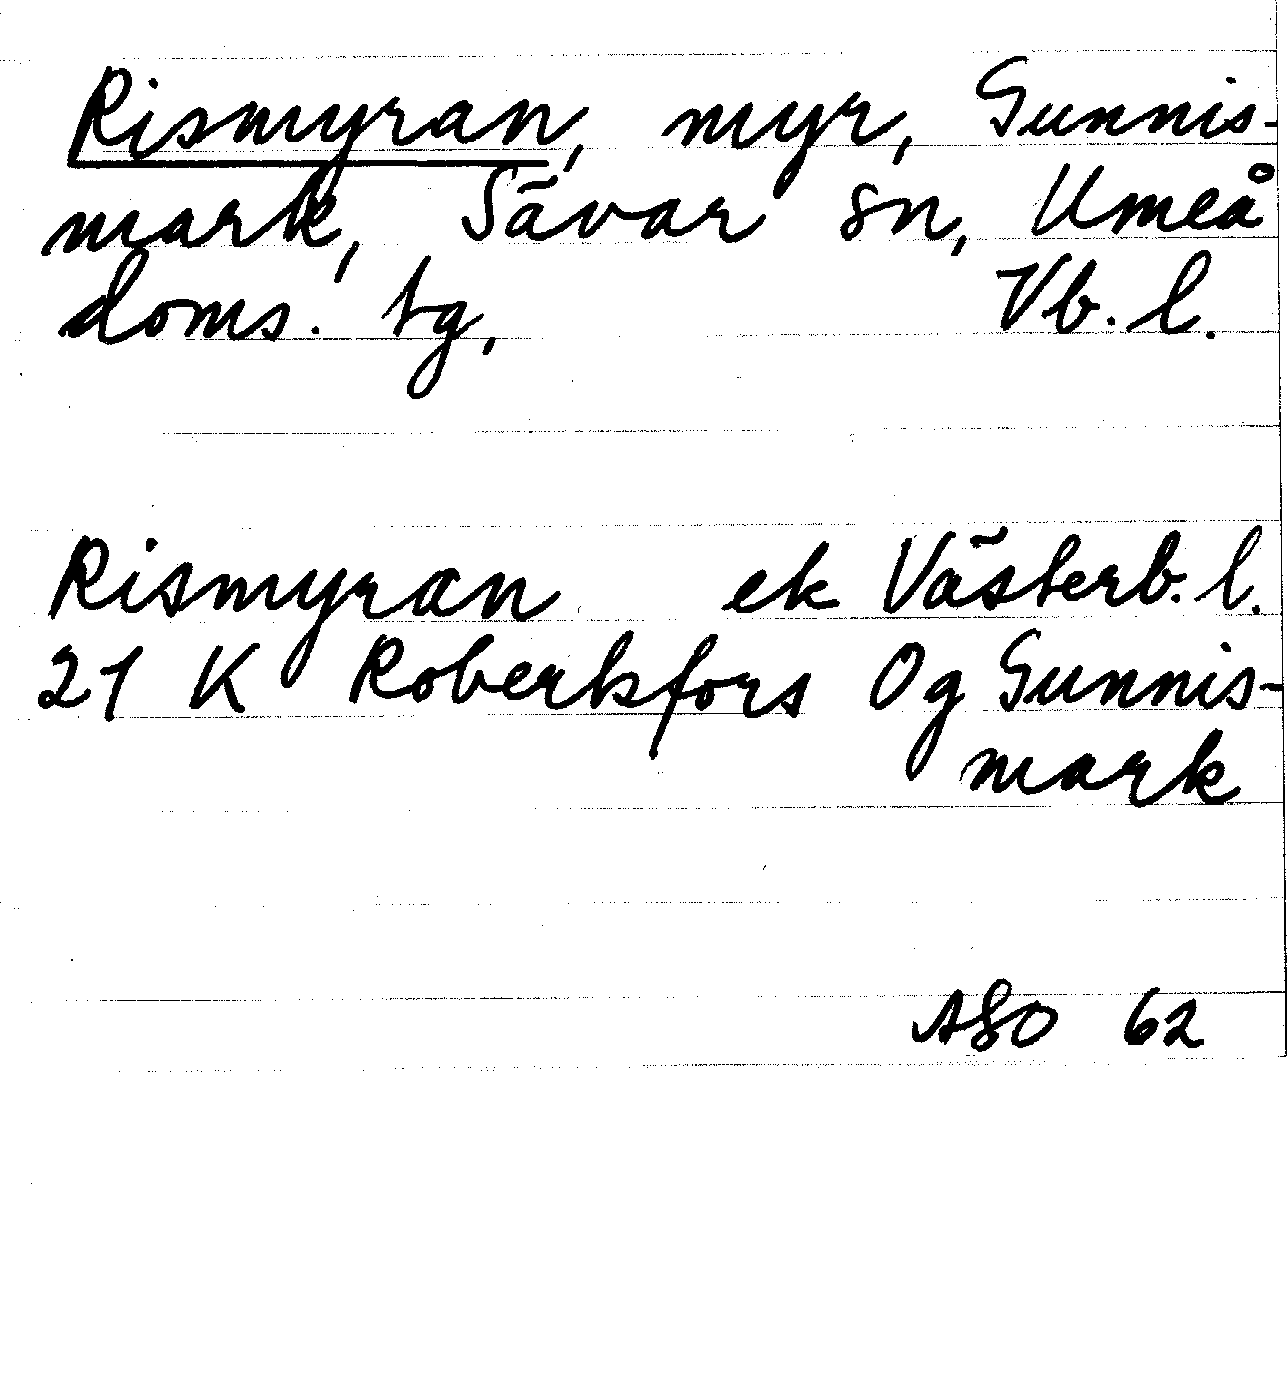 Rismyran, myr, Gunnis-
mark, Sävar sn, Umeå
doms. tg, Vb. l.
Rismyran ek Västerb. l.
21 K Robertsfors Og Gunnis-
mark
ASO 62